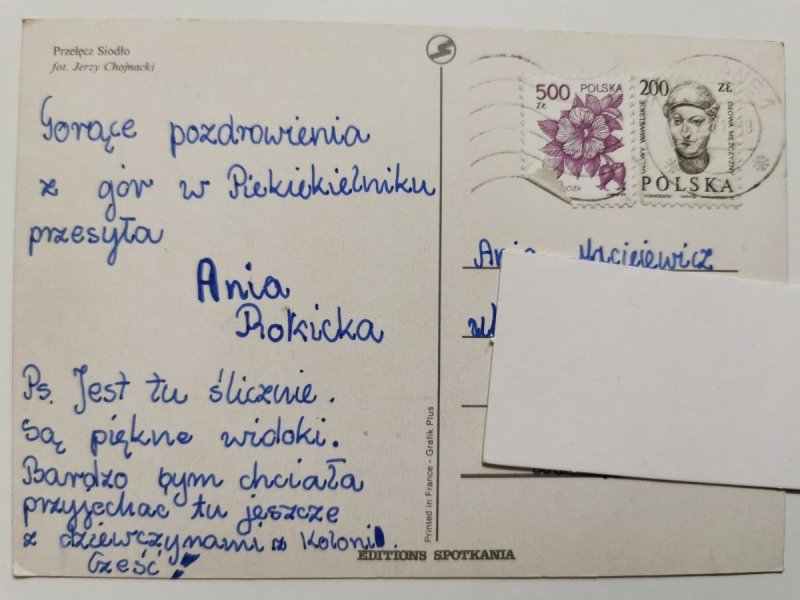 Przełęcz Siodło
fot. Jerzy Chojnacki
Gorące pozdrowienia
z gór w Piekiekielniku
przesyła
Ania
Rokicka
Ps. Jest tu ślicznie.
Są piękne widoki.
Bardzo bym chciała
przyjechać tu jeszcze
z dziewczynami z Koloni.
Cześć!
Printed in France - Grafik Plus
EDITIONS SPOTKANIA
500 POLSKA
ZŁ
200 ZŁ
GŁOWY WAWELSKIE
GŁOWA MĘŻCZYZNY
POLSKA
Ania Maciejewicz